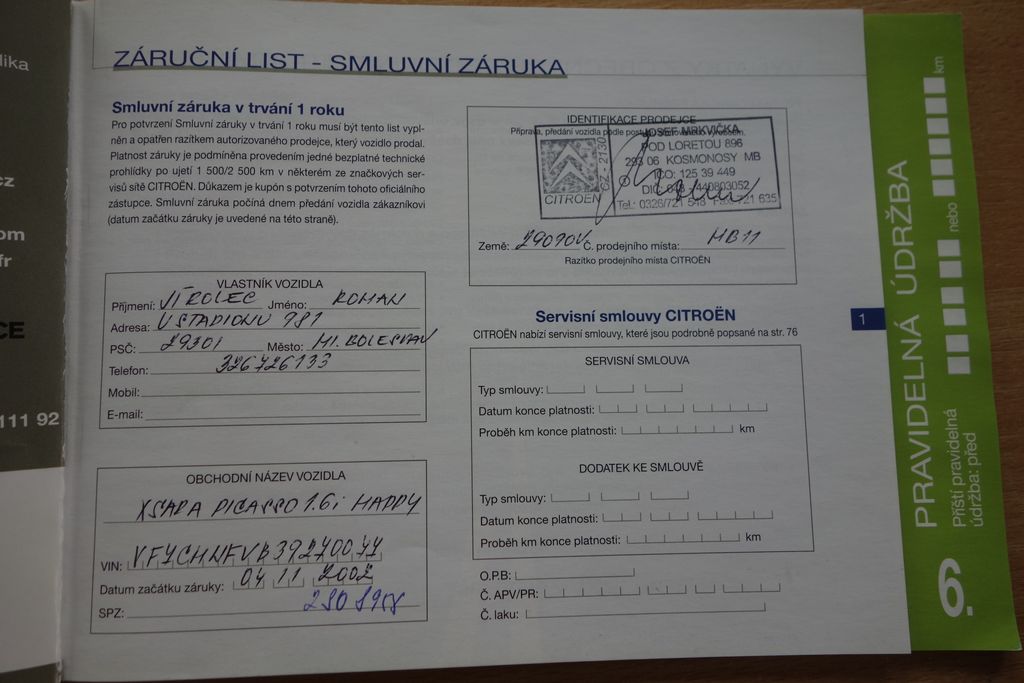 lika
cz
om
fr
CE
111 92
ZÁRUČNÍ LIST - SMLUVNÍ ZÁRUKA
Smluvní záruka v trvání 1 roku
Pro potvrzení Smluvní záruky v trvání 1 roku musí být tento list vypl-
něn a opatřen razítkem autorizovaného prodejce, který vozidlo prodal.
Platnost záruky je podmíněna provedením jedné bezplatné technické
prohlídky po ujetí 1 500/2 500 km v některém ze značkových ser-
visů sítě CITROËN. Důkazem je kupón s potvrzením tohoto oficiálního
zástupce. Smluvní záruka počíná dnem předání vozidla zákazníkovi
(datum začátku záruky je uvedené na této straně).
VLASTNÍK VOZIDLA
Příjmení: JÍROLEC Jméno: ROMAN
Adresa: U STADIONU 781
PSČ: 29301 Město: Ml. BOLESLAV
Telefon: 326726133
Mobil:
E-mail:
OBCHODNÍ NÁZEV VOZIDLA
XSARA PICASSO 1.6i HAPPY
VIN:
Datum začátku záruky: 04 11 2002
SPZ:
IDENTIFIKACE PRODEJCE
Příprava, předání vozidla podle
JOSEF MRKVIČKA
POD LORETOU 896
293 06 KOSMONOSY MB
IČO: 125 39 449
CZ - 2130
CITROËN
Tel.: 0326/721 548 Fax: 721 635
Země: Č. prodejního místa: MB11
Razítko prodejního místa CITROËN
Servisní smlouvy CITROËN
CITROËN nabízí servisní smlouvy, které jsou podrobně popsané na str. 76
SERVISNÍ SMLOUVA
Typ smlouvy:
Datum konce platnosti:
Proběh km konce platnosti: km
DODATEK KE SMLOUVĚ
Typ smlouvy:
Datum konce platnosti:
Proběh km konce platnosti: km
O.P.B:
Č. APV/PR:
Č. laku:
1
PRAVIDELNÁ ÚDRŽBA
Příští pravidelná
údržba: před
nebo
km
6.